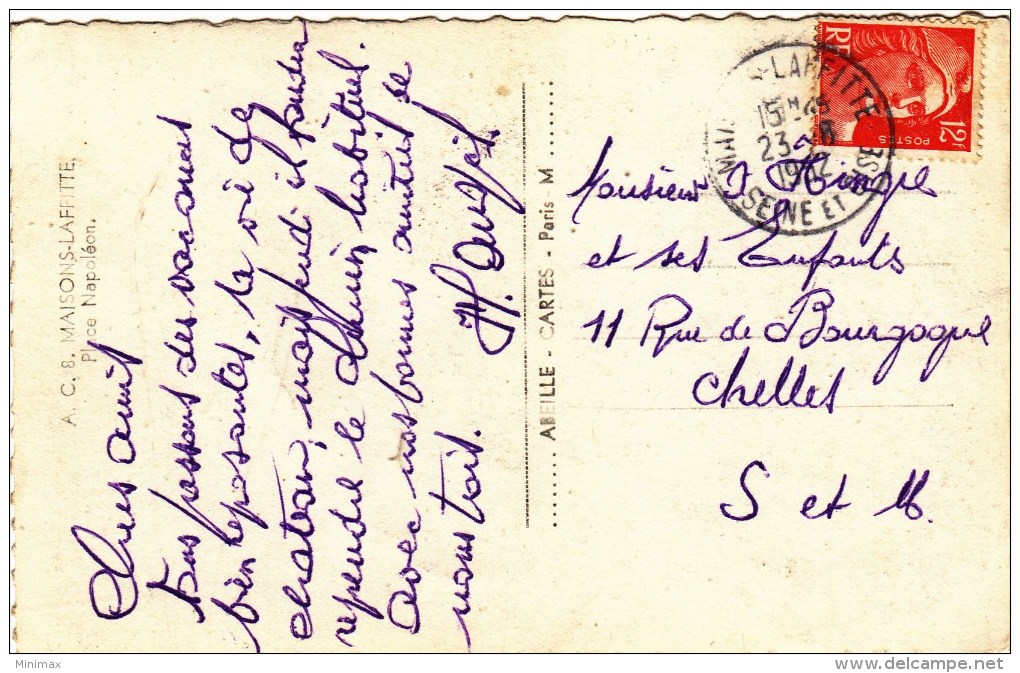 A. C. 8. MAISONS-LAFFITTE.
Place Napoléon.
Chers amis
Nous passons des vacances
bien reposantes, la vie de
chateau, mais jeudi il faudra
reprendre le chemin habituel.
Avec nos bonnes amitiés de
nous trois.
ABEILLE - CARTES - Paris - M
RF
12F
POSTES
LAFFITTE
15H45
23-8
SEINE ET OISE
Monsieur
et ses Enfants
11 Rue de Bourgogne
Chelles
S et M.
Minimax
www.delcampe.net